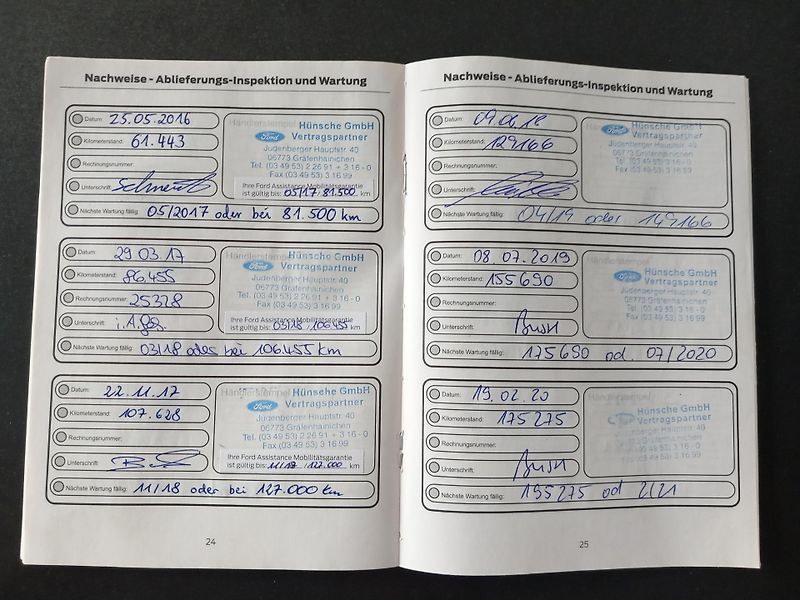 Nachweise - Ablieferungs-Inspektion und Wartung
Datum: 25.05.2016
Kilometerstand: 61.443
Rechnungsnummer:
Unterschrift:
Händlerstempel
Ford
Hünsche GmbH
Vertragspartner
Judenberger Hauptstr. 40
06773 Gräfenhainichen
Tel. (03 49 53) 2 26 91 + 3 16 - 0
Fax (03 49 53) 3 16 99
Ihre Ford Assistance Mobilitätsgarantie
ist gültig bis: 05/17 / 81.500 km
Nächste Wartung fällig: 05/2017 oder bei 81.500 km
Datum: 29.03.17
Kilometerstand: 86.455
Rechnungsnummer: 25378
Unterschrift: i.A.
Händlerstempel
Ford
Hünsche GmbH
Vertragspartner
Judenberger Hauptstr. 40
06773 Gräfenhainichen
Tel. (03 49 53) 2 26 91 + 3 16 - 0
Fax (03 49 53) 3 16 99
Ihre Ford Assistance Mobilitätsgarantie
ist gültig bis: 03/18 / 106.455 km
Nächste Wartung fällig: 03/18 oder bei 106.455 km
Datum: 22.11.17
Kilometerstand: 107.628
Rechnungsnummer:
Unterschrift:
Händlerstempel
Ford
Hünsche GmbH
Vertragspartner
Judenberger Hauptstr. 40
06773 Gräfenhainichen
Tel. (03 49 53) 2 26 91 + 3 16 - 0
Fax (03 49 53) 3 16 99
Ihre Ford Assistance Mobilitätsgarantie
ist gültig bis: 11/18 / 127.000 km
Nächste Wartung fällig: 11/18 oder bei 127.000 km
24
Nachweise - Ablieferungs-Inspektion und Wartung
Datum:
Kilometerstand: 129166
Rechnungsnummer:
Unterschrift:
Ford
Hünsche GmbH
Vertragspartner
Judenberger Hauptstr. 40
06773 Gräfenhainichen
Nächste Wartung fällig: 04/19 oder 149166
Datum: 08.07.2019
Kilometerstand: 155690
Rechnungsnummer:
Unterschrift:
Ford
Hünsche GmbH
Vertragspartner
Judenberger Hauptstr. 40
06773 Gräfenhainichen
Tel. (03 49 53) 2 26 91 + 3 16 - 0
Fax (03 49 53) 3 16 99
Nächste Wartung fällig: 175690 od. 07/2020
Datum: 19.02.20
Kilometerstand: 175275
Rechnungsnummer:
Unterschrift:
Händlerstempel
Hünsche GmbH
Vertragspartner
Judenberger Hauptstr. 40
06773 Gräfenhainichen
Nächste Wartung fällig: 195275 od 2/21
25